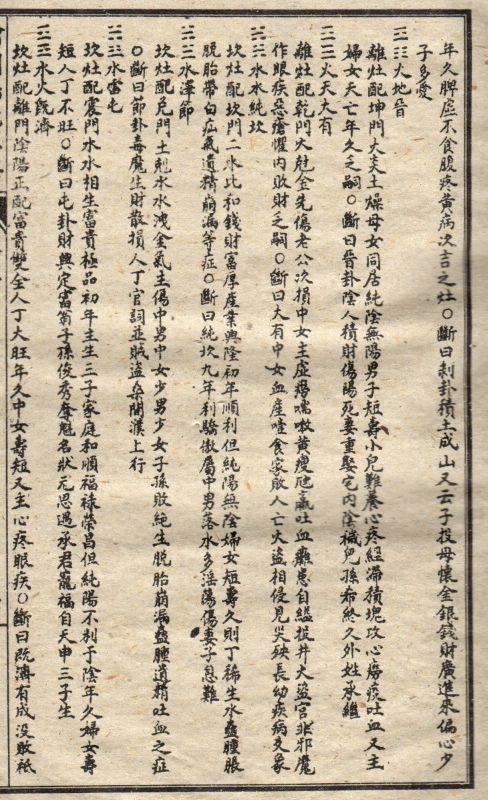 年久脾虛不食腹疼黃病次吉之灶○斷曰剝卦積土成山又云子投母懷金銀錢財廣進來偏心少
子多愛
☲☷火地晉
離灶配坤門火炎土燥母女同居純陰無陽男子短壽小兒難養心疼經滯積塊攻心癆疫吐血又主
婦女夭亡年久乏嗣○斷曰晉卦陰人積財傷陽死妻重娶宅內陰穢兒孫希終久外姓承繼
☲☰火天大有
離灶配乾門火尅金先傷老公次損中女主虛癆喘嗽黃瘦尫羸吐血癱患自縊投井火盜官非邪魔
作眼疾惡瘡懼內敗財乏嗣○斷曰大有中女血產噎食家敗人亡火盜相侵見災殃長幼疾病爻象
☵☵水水純坎
坎灶配坎門二水比和錢財富厚產業興隆初年順利但純陽無陰婦女短壽久則丁稀生水蠱腫脹
脫胎帶白疝氣遺精崩漏等症○斷曰純坎九年利驕傲屬中男落水多淫蕩傷妻子息難
☵☱水澤節
坎灶配兌門土剋水水洩金氣主傷中男中女少男少女子孫敗絕生脫胎崩漏蠱腫遺精吐血之症
○斷曰節卦毒魔生財散損人丁官詞並賊盜桑間濮上行
☵☳水雷屯
坎灶配震門水水相生富貴極品初年主生三子家庭和順福祿榮昌但純陽不利于陰年久婦女壽
短人丁不旺○斷曰屯卦財興定富翁子孫俊秀奪魁名狀元恩遇承君寵福自天申三子生
☵☲水火既濟
坎灶配離門陰陽正配富貴雙全人丁大旺年久中女壽短又主心疼眼疾○斷曰既濟有成沒敗衹